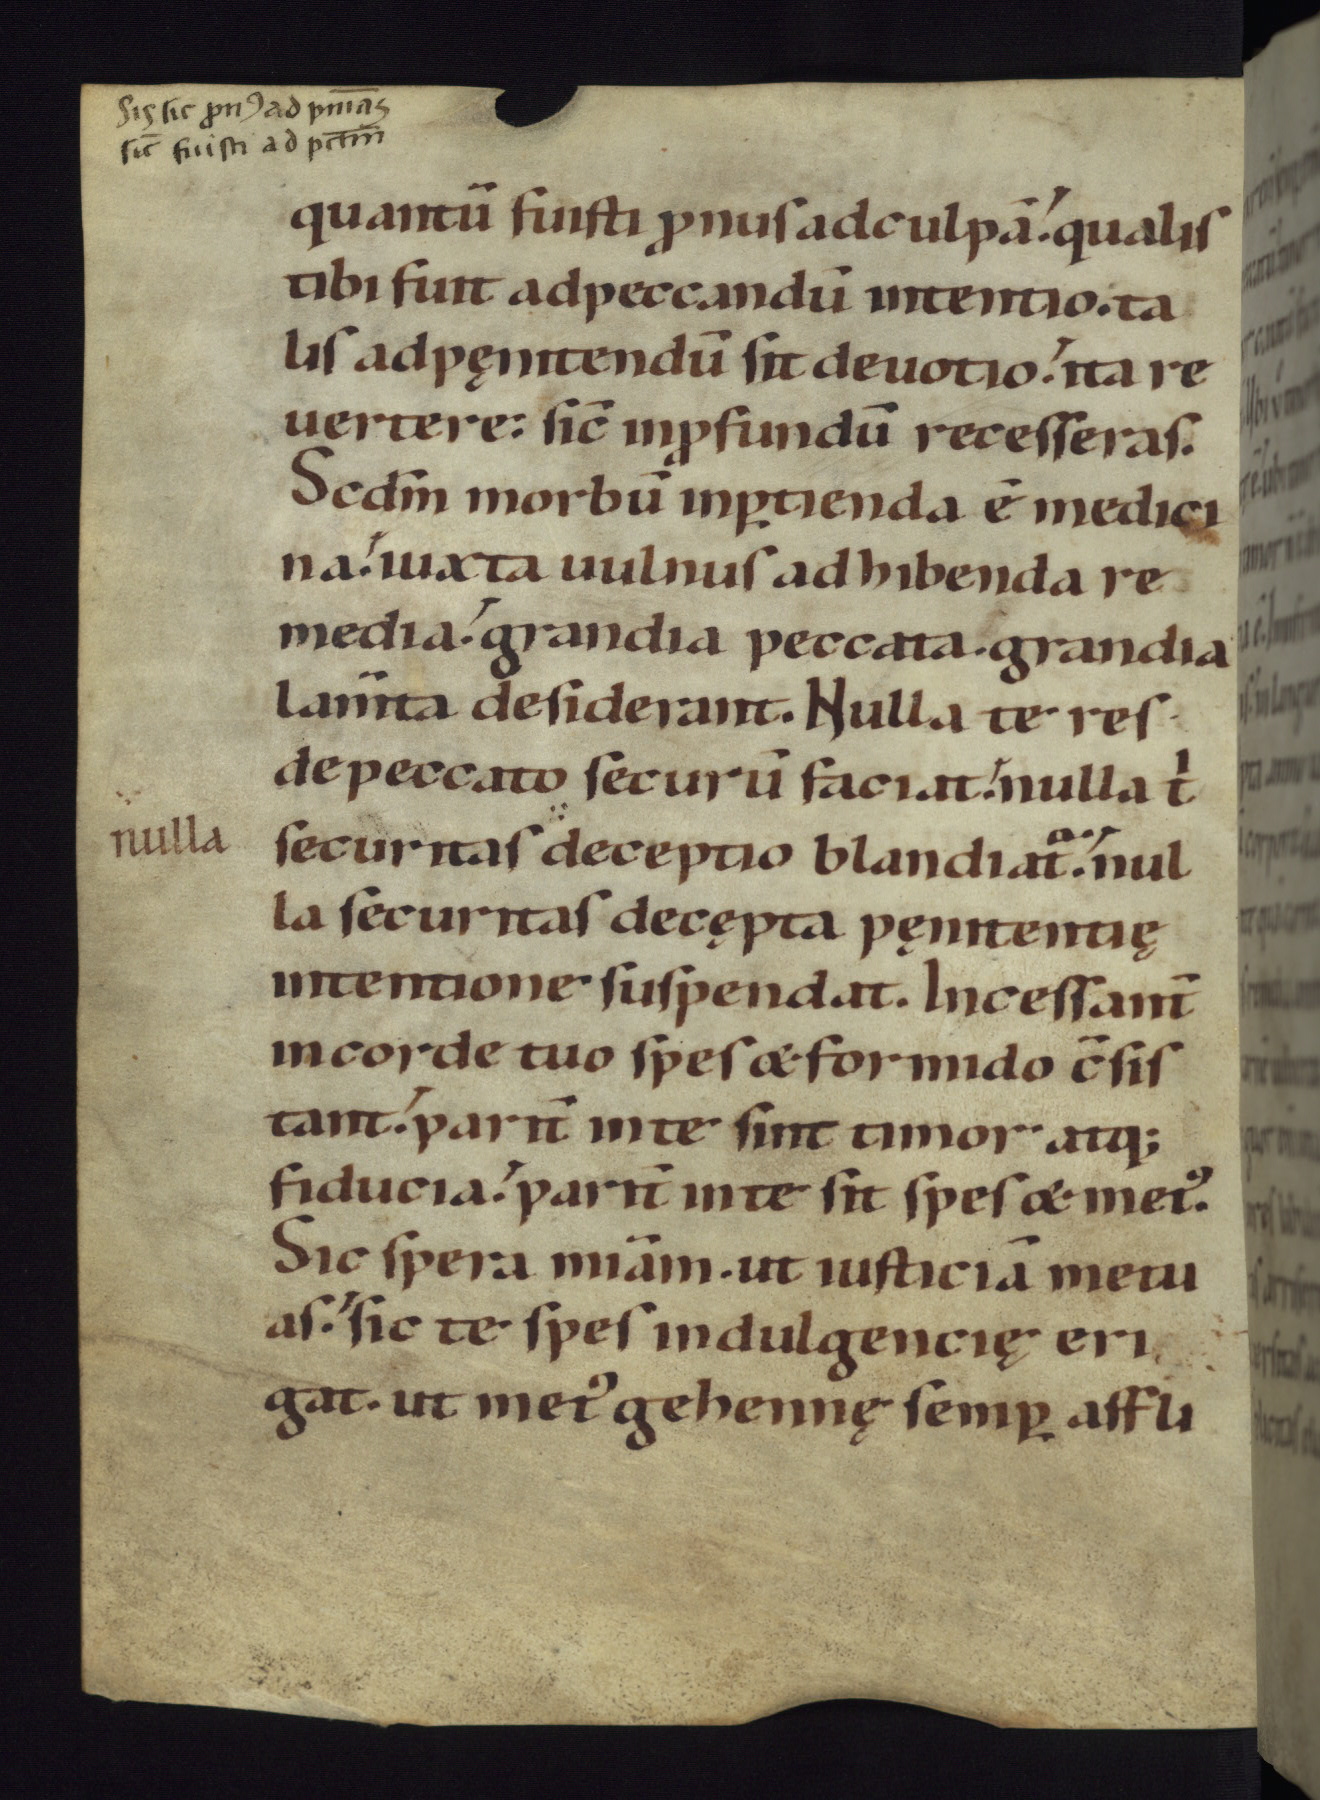 Sis sic ꝓnꝰ ad pn̄iās
sic̄ fuisti ad pctm̄
quantū fuisti ꝓnus ad culpā. qualis
tibi fuit ad peccandū intentio. ta
lis ad pęnitendū sit deuotio. ita re
uertere: sic̄ in ꝓfundū recesseras.
Scdm̄ morbū inꝑtienda ē medici
na. iuxta uulnus adhibenda re
media. grandia peccata. grandia
lam̄ta desiderant. Nulla te res
de peccato securū faciat. nulla t
nulla
securitas deceptio blandiat. nul
la securitas decępta pęnitentię
intentione suspendat. Incessant̄
in corde tuo spes & formido c̄sis
tant. parit̄ in te sint timor atq;
fiducia. parit̄ in te sit spes & metꝰ.
Sic spera miām. ut iusticiā metu
as. sic te spes indulgencię eri
gat. ut metꝰ gehennę semꝑ affli